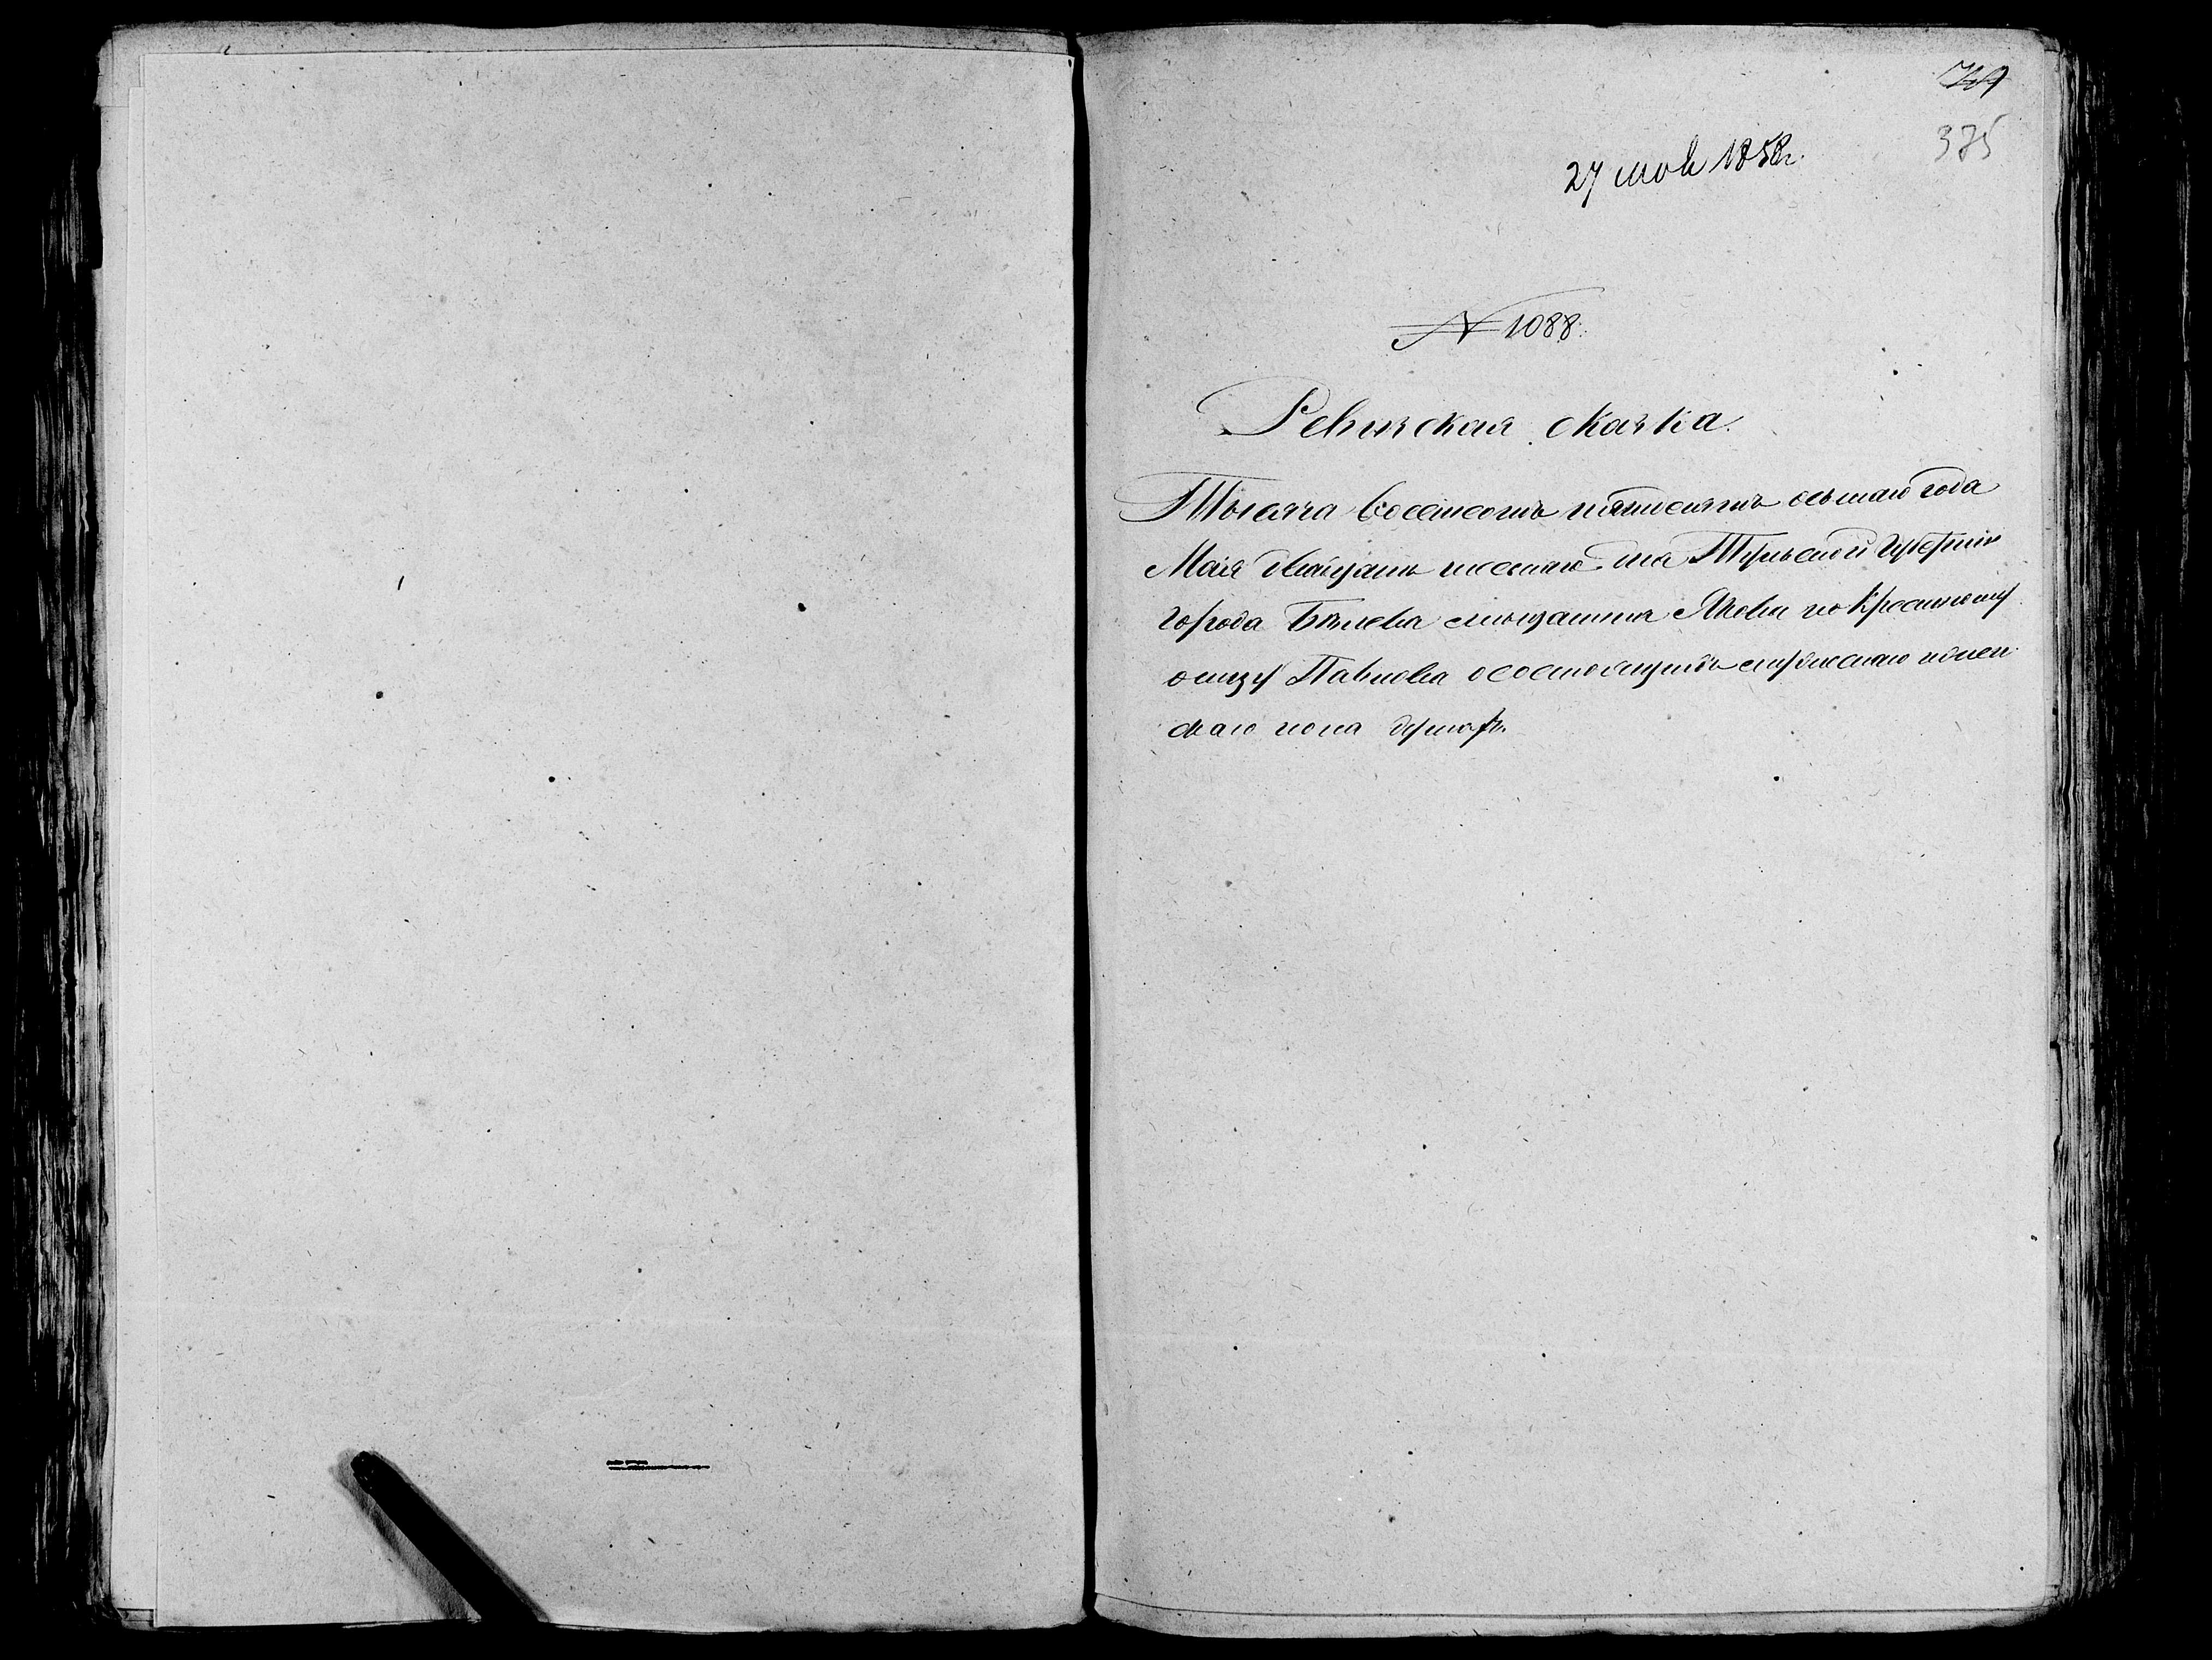 375
27 мая 1858г.
№ 1088.
Ревизская сказка.
Тысяча восемсотъ пятидесятъ осьмаго года
Маія двадцать шестаго дня Тульской Губерніи
города Бѣлева мещанина Якова по крестному
отцу Павлова о состоящихъ мужескаго и женс
скаго пола душахъ.